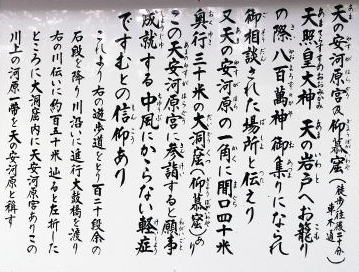 天の安河原宮及仰慕窟(徒歩往復二十分 車不通)
天照皇大神 天の岩戸へお籠り
の際 八百萬神 御集りになされ
御相談された場所と伝えり
又天の安河原の一角に間口四十米
奥行三十米の大洞窟(仰慕窟)あり
この天安河原宮に参詣すると願事
成就する中風にかゝらない軽症
ですむとの信仰あり
これより右の遊歩道をとり百二十段余の
石段を降り川沿いに進行大鼓橋を渡り
右の川伝いに約百五十米辿ると左折した
ところに大洞窟内に天安河原宮ありこの
川上の河原一帯を天の安河原と称す